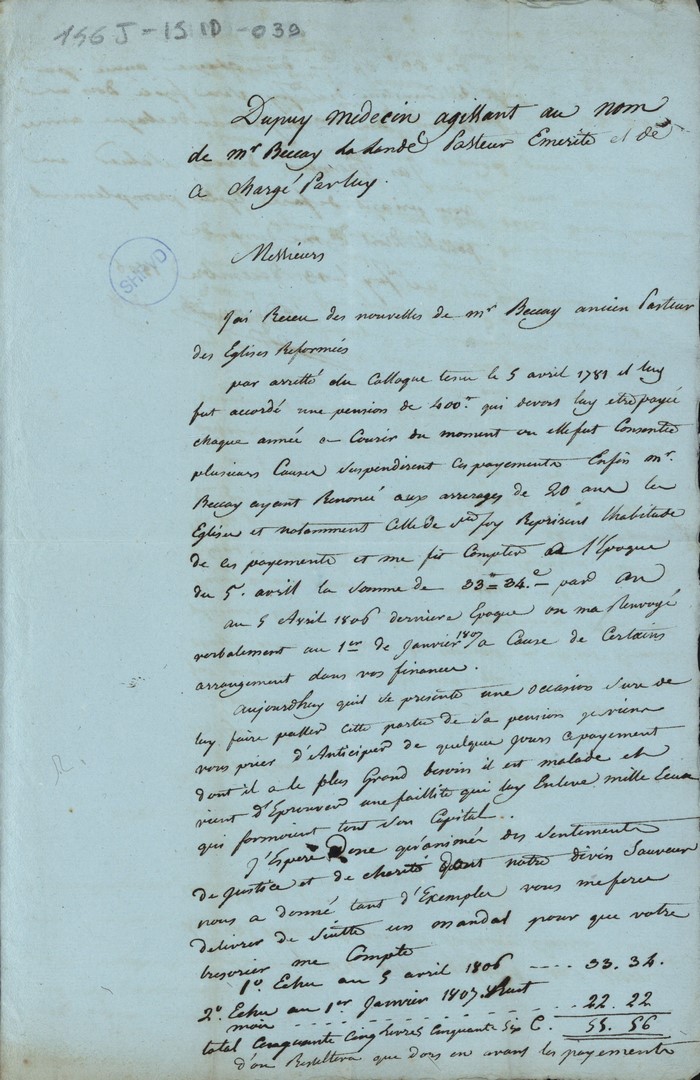 156 J - 15 1D - 039
Dupuy médecin agissant au nom
de mr Beccay La Lande Pasteur Emerite et de
a chargé Par luy.
SHPVD
Messieurs
J'ai Receu des nouvelles de mr Beccay ancien Pasteur
des Eglises Reformées
par arretté du Colloque tenu le 5 avril 1781 il luy
fut accordé une pension de 400tt qui devoit luy etre payée
chaque année a Courir du moment ou elle fut Consentie
plusieurs Causes suspendirent ces payements Enfin mr.
Beccay ayant Renoncé aux arrerages de 20 ans les
Eglises et notamment Celle de ste foy Reprirent l'habitude
de ces payements et me fit Compter a l'Epoque
du 5e. avril la somme de 33tt = 34.c - par an
au 5 Avril 1806 derniere Epoque on ma Renvoyé
verbalement au 1er de Janvier 1807 a Cause de Certains
arrangement dans vos finances.
aujourdhuy quil se presente une occasion sure de
luy faire passer cette partie de sa pension je viens
vous prier d'Anticiper de quelque jours ce payement
dont il a le plus Grand besoin il est malade et
vient d'Eprouver une faillite qui luy Enleve mille Ecus
qui formoient tout son Capital.
J'Espere Donc qu'animés des sentiments
de justice et de charité dont notre divin Sauveur
nous a donné tant d'Exemples vous me feres
delivrer de suitte un mandat pour que votre
tresorier me Compte
1o. Echu au 5 avril 1806 ---- 33. 34.
2o. Echu au 1er Janvier 1807. huit
mois - - - - - - - - - - 22. 22
total Cinquante Cinq livres Cinquante Six C. 55. 56
d'ou Resultera que dors en avant les payements